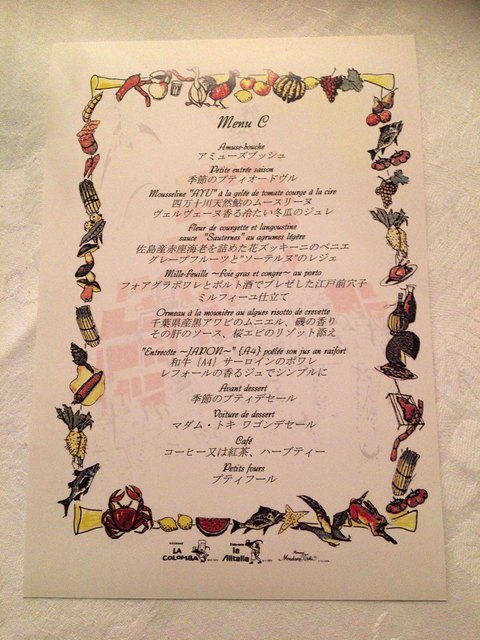 Menu C
Amuse-bouche
アミューズブッシュ
Petite entrée saison
季節のプティオードヴル
Mousseline "AYU" à la gelée de tomate courge à la cire
四万十川天然鮎のムースリーヌ
ヴェルヴェーヌ香る冷たい冬瓜のジュレ
Fleur de courgette et langoustine
sauce "Sauternes" au agrumes légère
佐島産赤座海老を詰めた花ズッキーニのベニエ
グレープフルーツと"ソーテルヌ"のレジェ
Mille-feuille ～foie gras et congre～ au porto
フォアグラポワレとポルト酒でブレゼした江戸前穴子
ミルフィーユ仕立て
Ormeau à la mounière au algues risotto de crevette
千葉県産黒アワビのムニエル、磯の香り
その肝のソース、桜エビのリゾット添え
"Entrecôte ～JAPON～" (A4) poêlée son jus an raifort
和牛 (A4) サーロインのポワレ
レフォールの香るジュでシンプルに
Avant dessert
季節のプティデセール
Voiture de dessert
マダム・トキ ワゴンデセール
Café
コーヒー又は紅茶、ハーブティー
Petits fours
プティフール
LA COLOMBA
la Alitalia